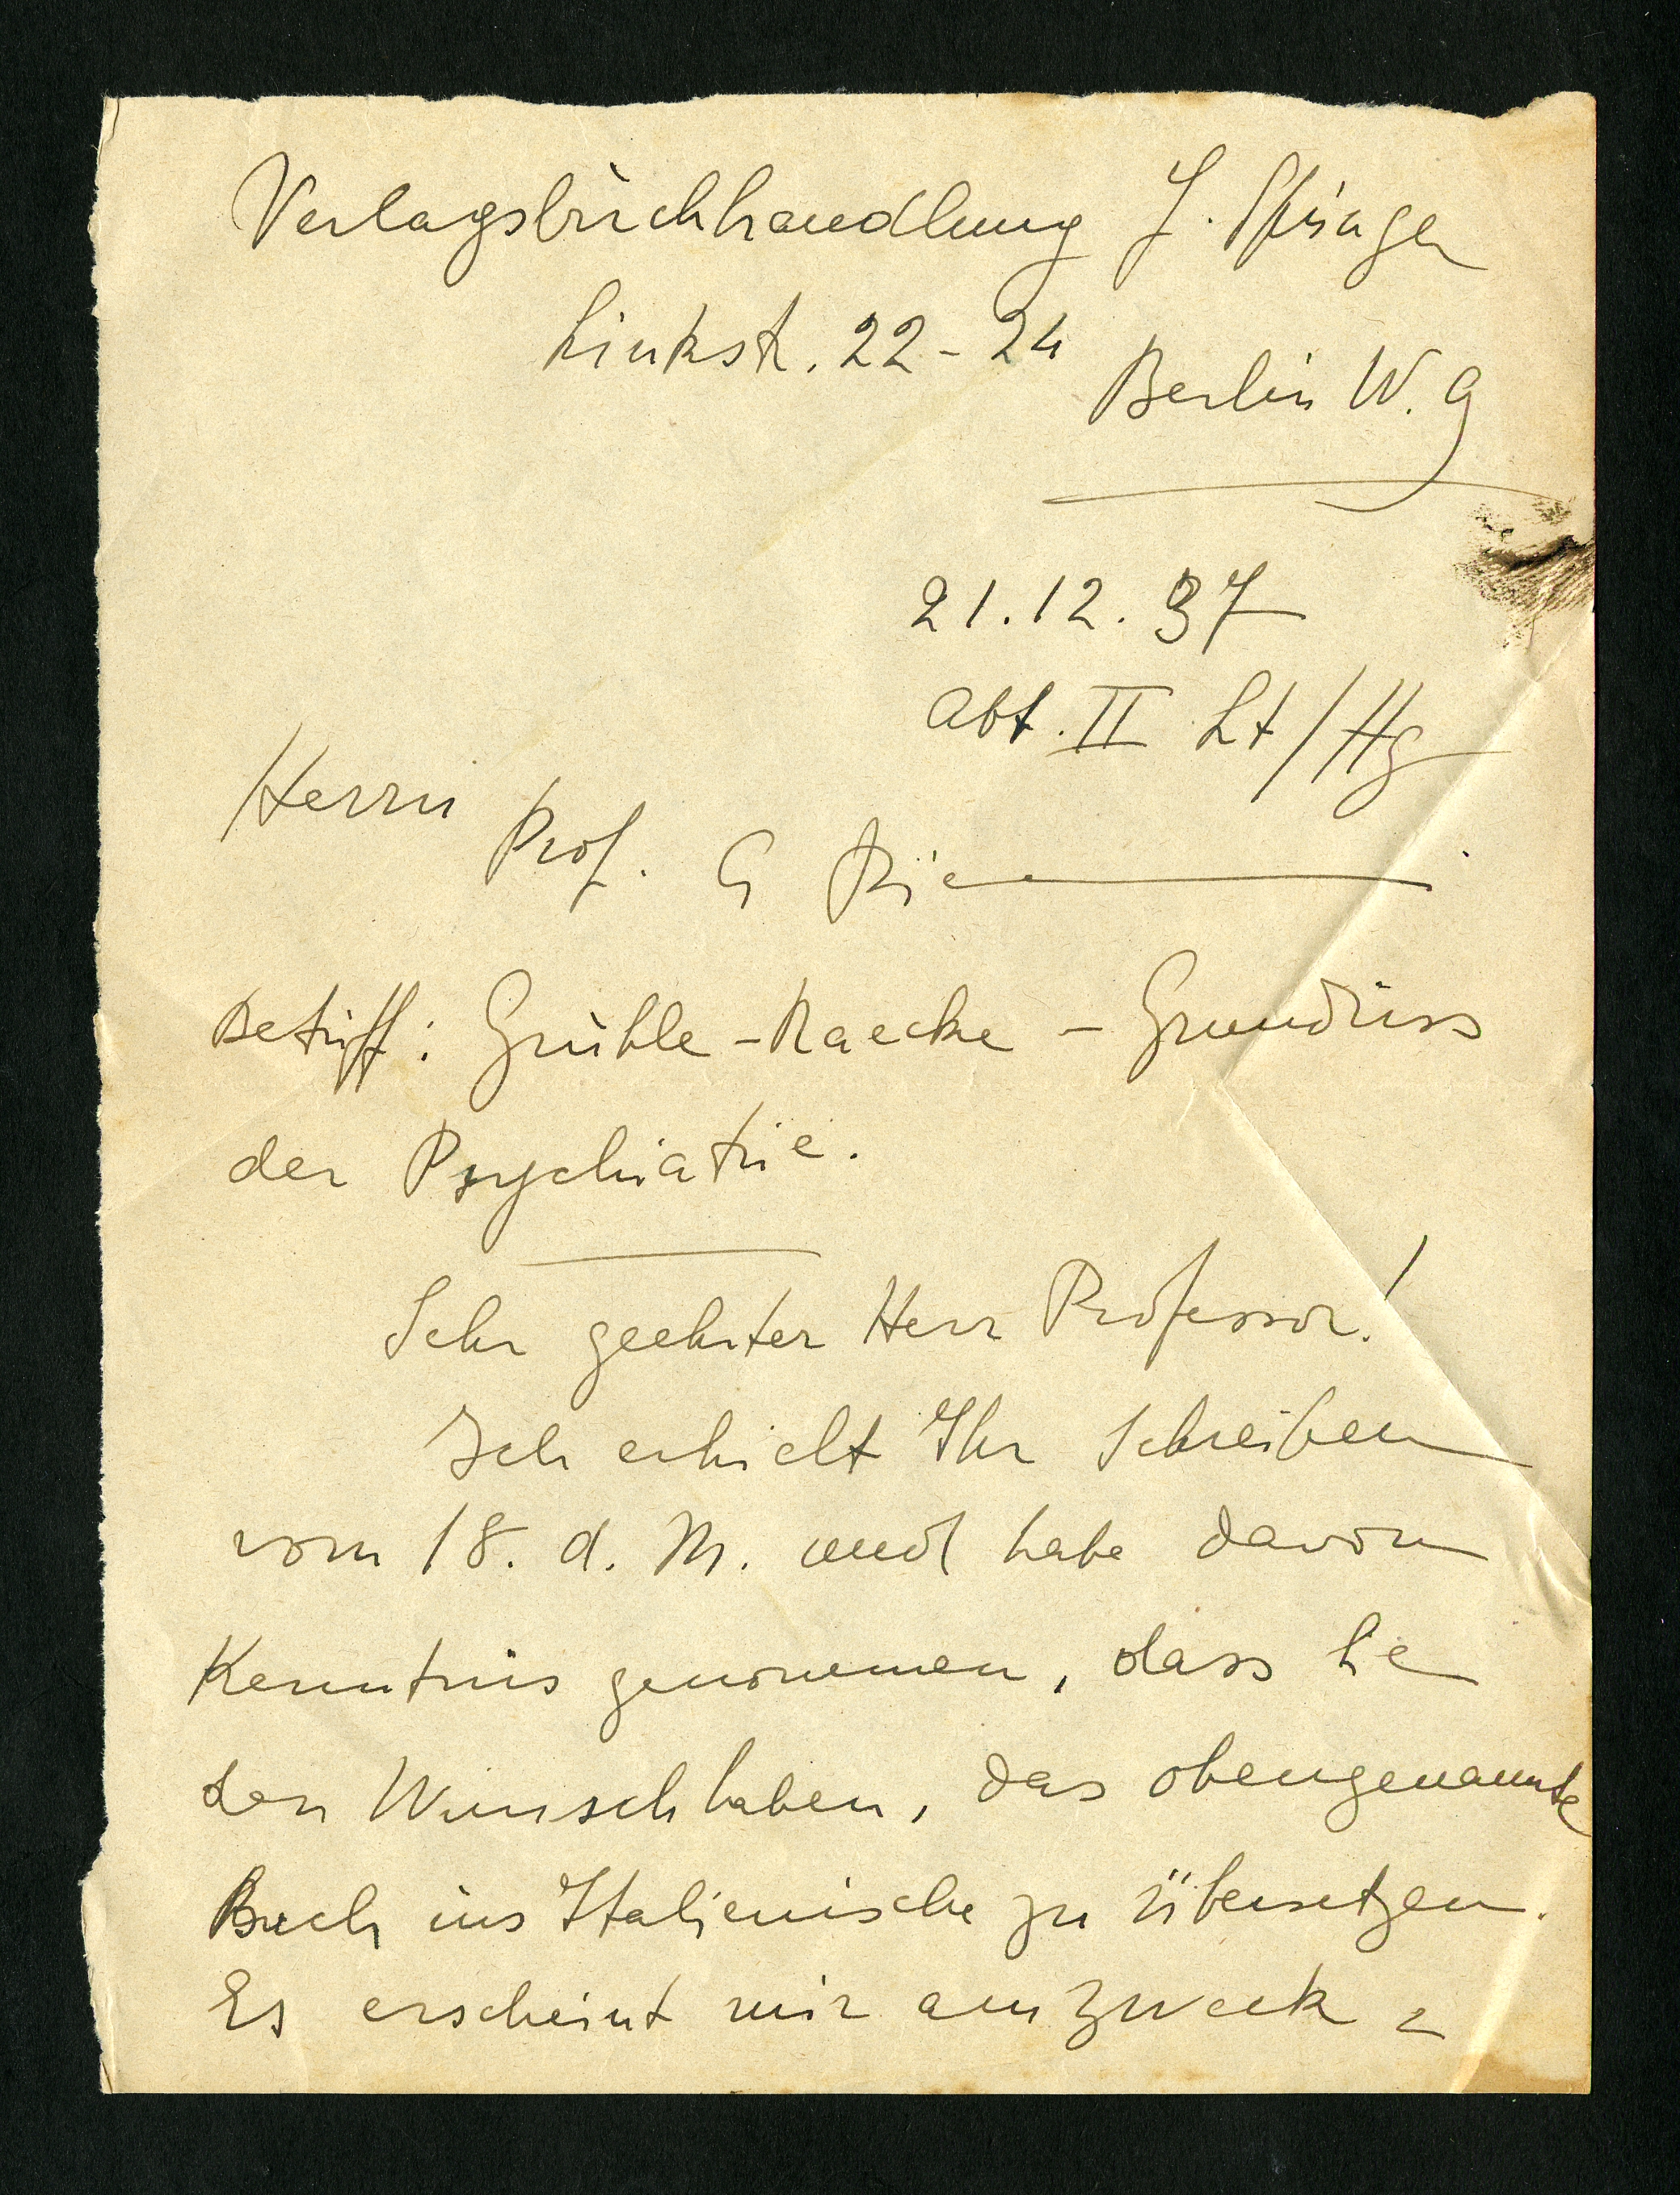 Verlagsbuchhandlung J. Springer
Linkst. 22-24
Berlin W. 9
21.12.37
Abt. II Lt/Hg
Herrn
Prof. G
Betriff: Gruhle-Raecke - Grundriss
der Psychiatrie.
Sehr geehrter Herr Professor!
Ich erhielt Ihr Schreiben
vom 18. d. M. und habe davon
Kenntnis genommen, dass Sie
den Wunsch haben, das obengenannte
Buch ins Italienische zu übersetzen.
Es erscheint mir am zweck =